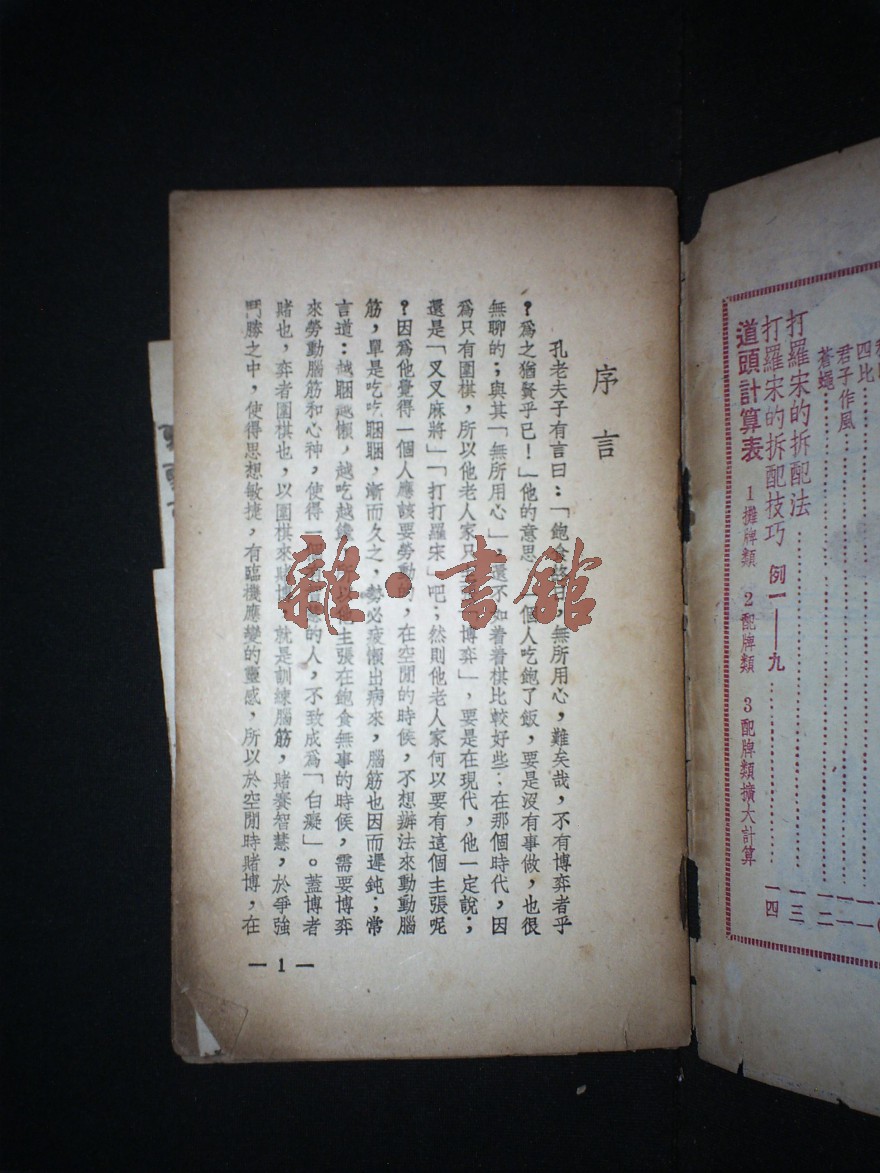 四比
君子作風 一一
蒼蠅 一二
打羅宋的拆配法 一三
打羅宋的拆配技巧 例一——九 一四
道頭計算表 1攤牌類 2配牌類 3配牌類擴大計算
序言
孔老夫子有言曰：「飽食終日，無所用心，難矣哉，不有博弈者乎
？爲之猶賢乎已！」他的意思，一個人吃飽了飯，要是沒有事做，也很
無聊的；與其「無所用心」，還不如着着棋比較好些，在那個時代，因
爲只有圍棋，所以他老人家只「博弈」，要是在現代，他一定說；
還是「叉叉麻將」「打打羅宋」吧；然則他老人家何以要有這個主張呢
？因爲他覺得一個人應該要勞動的，在空閒的時候，不想辦法來動動腦
筋，單是吃吃睏睏，漸而久之，勢必疲懶出病來，腦筋也因而遲鈍；常
言道：越睏越懶，越吃越饞，所以他主張在飽食無事的時候，需要博弈
來勞動腦筋和心神，使得一個的人，不致成爲「白癡」。蓋博者
賭也，弈者圍棋也，以圍棋來賭博，就是訓練腦筋，賭賽智慧，於爭強
鬥勝之中，使得思想敏捷，有臨機應變的靈感，所以於空閒時賭博，在
— 1 —
雜·書館